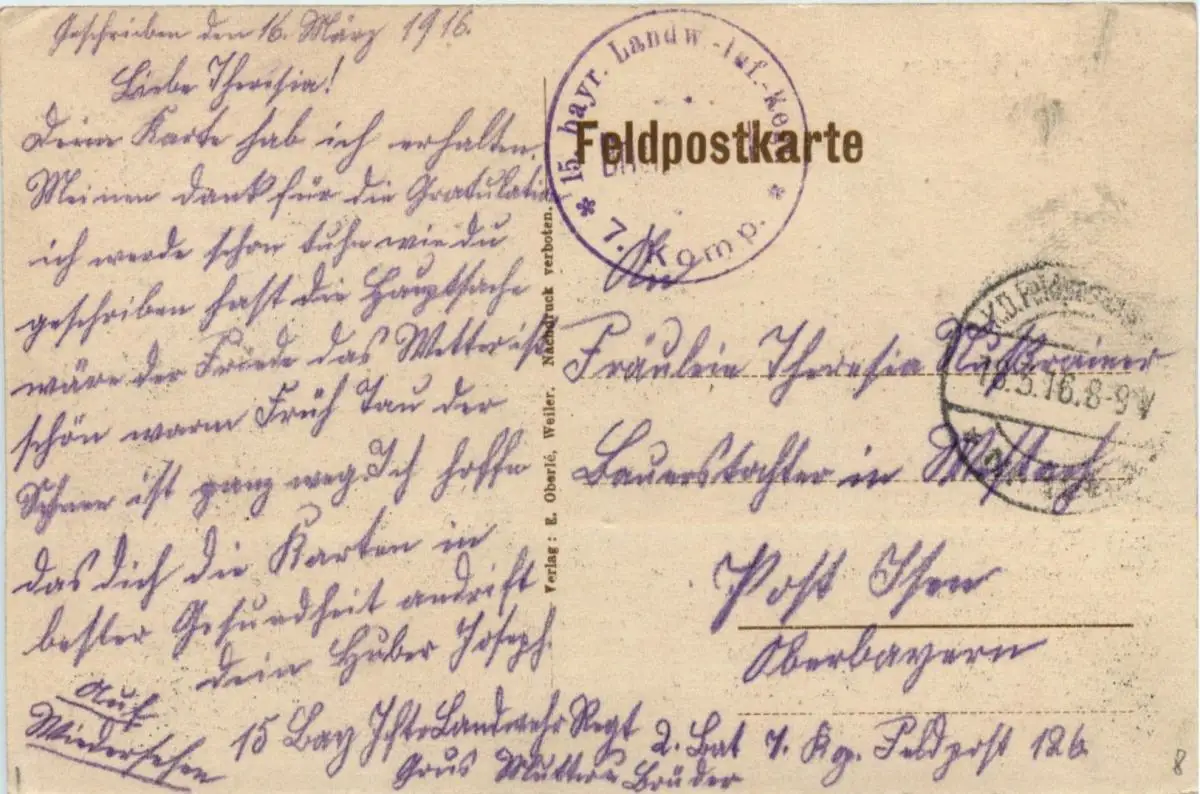 Geschrieben den 16. März 1916.
Liebe Theresia!
Deine Karte hab ich erhalten.
Meinen Dank für die Gratulation
ich werde schon tuhn wie du
geschrieben hast die Hauptsache
wäre der Friede das Wetter ist
schön warm Früh Tau der
Schnee ist ganz weg. Ich hoffe
das dich die Karten in
bester Gesundheit andrift
dein Huber Joseph.
Auf
Wiedersehen
15 Bay Jft. Landwehr Regt 2. Bat 7. Kp. Feldpost 126.
Grus Mutter u Brüder
Verlag: E. Oberlé, Weiler. Nachdruck verboten.
* 15. bayr. Landw.-Inf.-Reg. *
7. Komp.
Feldpostkarte
An
Fräulein Theresia
Bauerstochter in
Post Isen
Oberbayern
K.D. Feldpost
8-9V
8